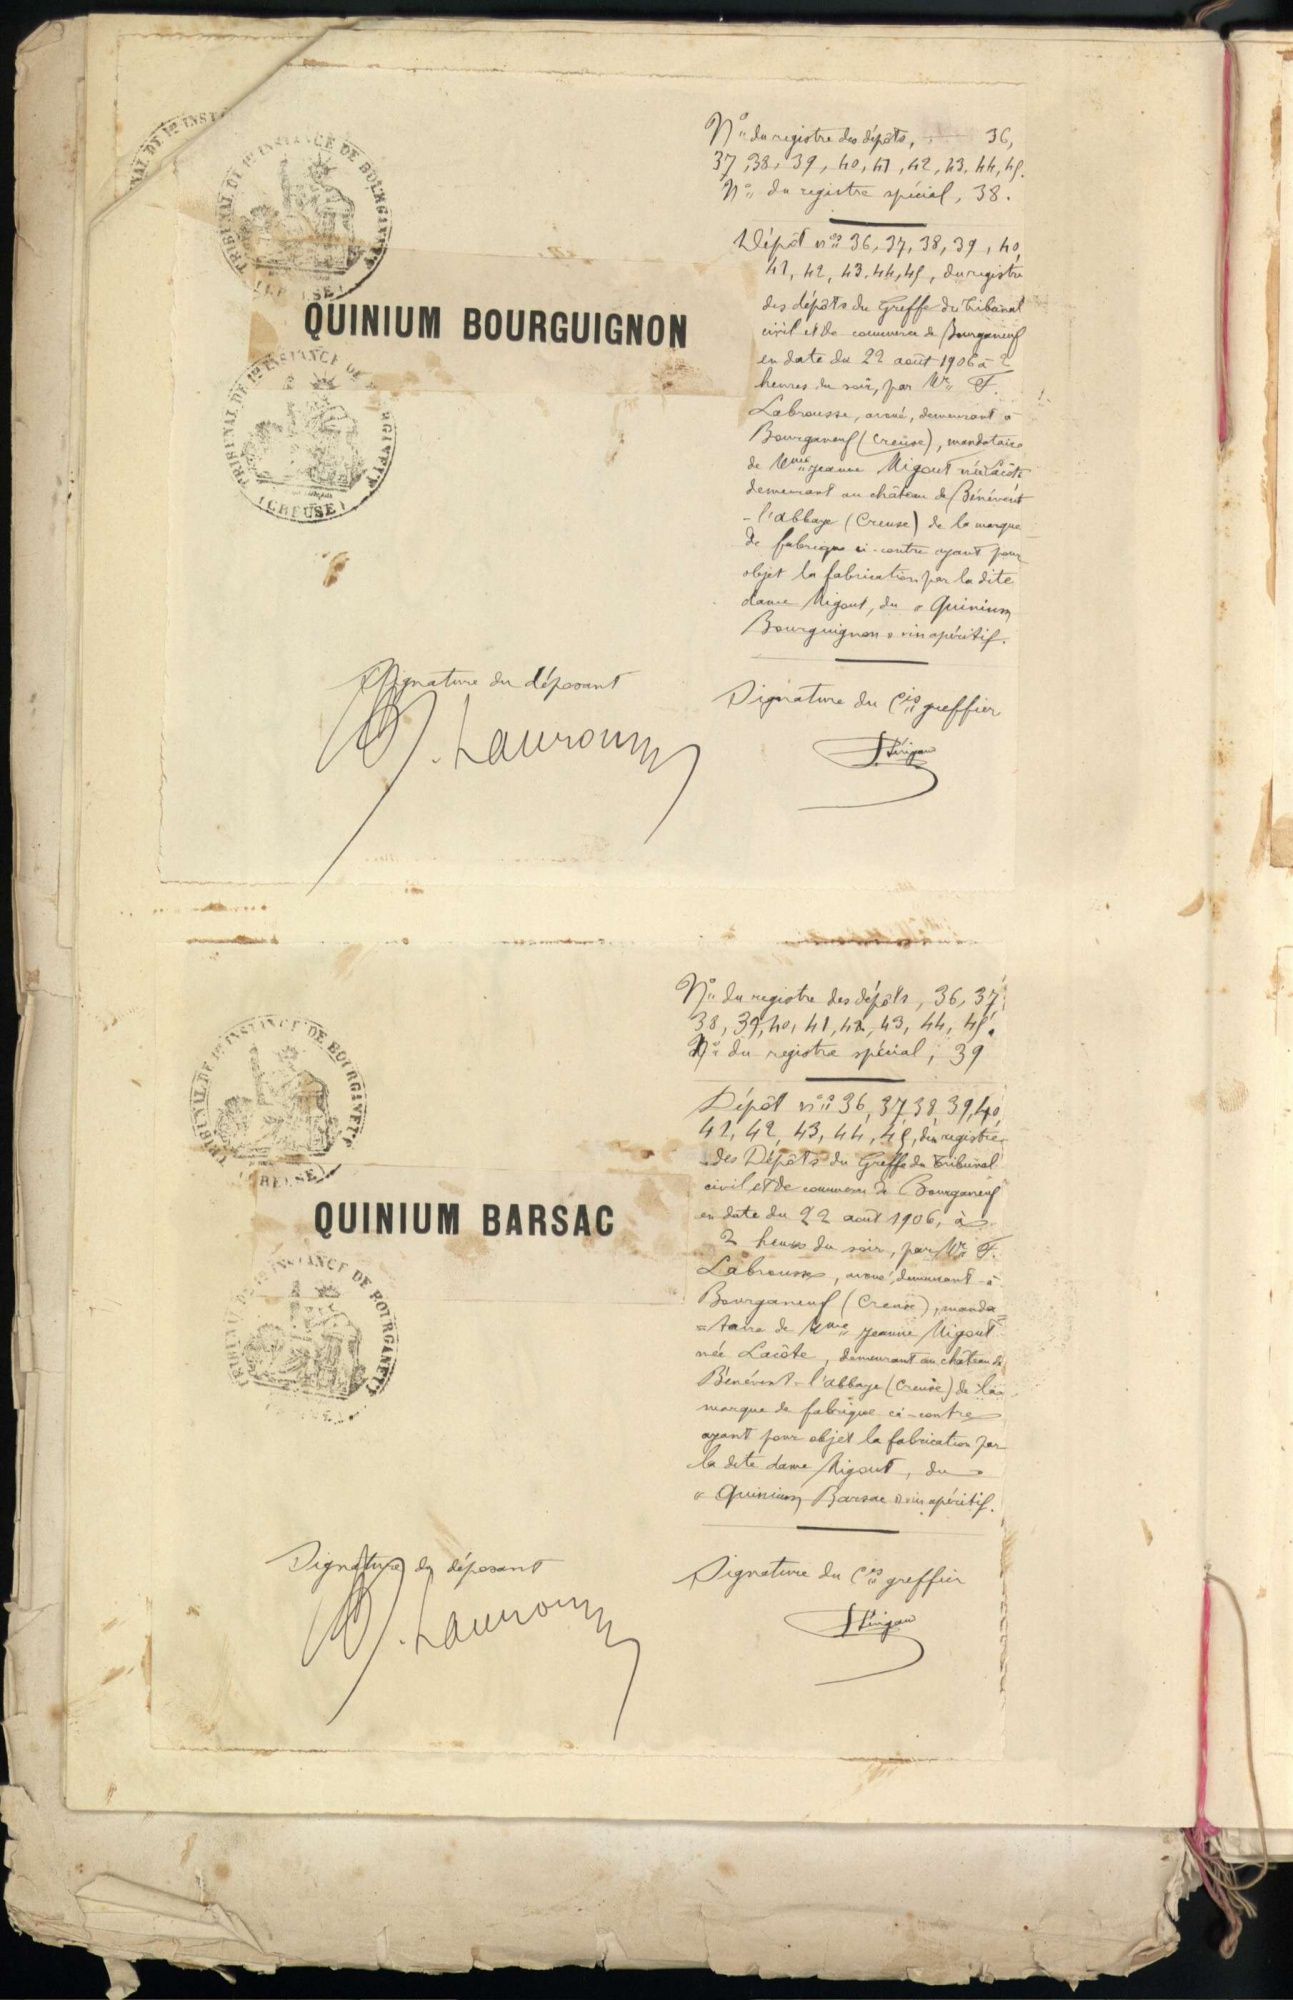 TRIBUNAL DE 1re INSTANCE DE BOURGANEUF
(CREUSE)
QUINIUM BOURGUIGNON
TRIBUNAL DE 1re INSTANCE DE BOURGANEUF
(CREUSE)
No. du registre des dépôts, 36,
37, 38, 39, 40, 41, 42, 43, 44, 45.
No. du registre spécial, 38.
Dépôt nos 36, 37, 38, 39, 40,
41, 42, 43, 44, 45, du registre
des dépôts du Greffe du Tribunal
civil et de commerce de Bourganeuf
en date du 22 août 1906 à 2
heures du soir, par Mr. F.
Labrousse, avoué, demeurant à
Bourganeuf (Creuse), mandataire
de Mme Jeanne Migout née Lacôte
demeurant au château de Bénévent
-l'abbaye (Creuse) de la marque
de fabrique ci-contre ayant pour
objet la fabrication par la dite
dame Migout, du « Quinium
Bourguignon » vin apéritif.
Signature du déposant
Signature du Cis greffier
TRIBUNAL DE 1re INSTANCE DE BOURGANEUF
(CREUSE)
QUINIUM BARSAC
TRIBUNAL DE 1re INSTANCE DE BOURGANEUF
No. du registre des dépôts, 36, 37,
38, 39, 40, 41, 42, 43, 44, 45.
No. du registre spécial, 39
Dépôt nos 36, 37, 38, 39, 40,
41, 42, 43, 44, 45, du registre
des Dépôts du Greffe du Tribunal
civil et de commerce de Bourganeuf
en date du 22 août 1906, à
2 heures du soir, par Mr. F.
Labrousse, avoué, demeurant à
Bourganeuf (Creuse), manda=
=taire de Mme Jeanne Migout
née Lacôte, demeurant au château de
Bénévent-l'abbaye (Creuse) de la
marque de fabrique ci-contre
ayant pour objet la fabrication par
la dite dame Migout, du
« Quinium Barsac » vin apéritif.
Signature du déposant
Signature du Cis greffier